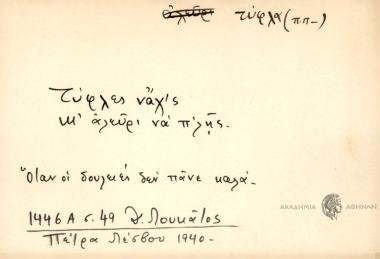 ἀλεῦρι τύφλα (π.π-)
Τύφλες νἄχῃς
κι' ἀλεῦρι νὰ π'λῇς.
Ὅταν οἱ δουλειές δὲν πᾶνε καλά.
1446 Α σ. 49 Δ. Λουκᾶτος
Πέτρα Λέσβου 1940-
ΑΚΑΔΗΜΙΑ ΑΘΗΝΩΝ